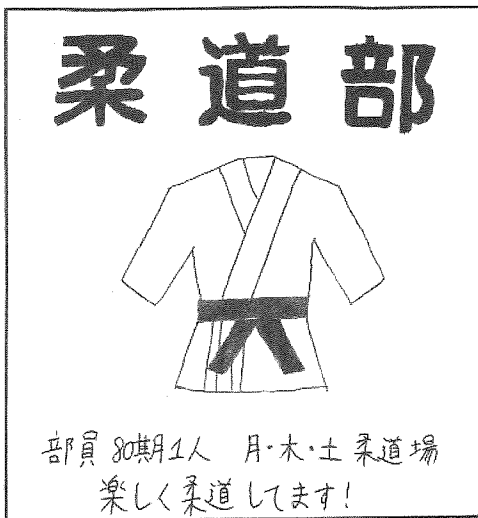 柔道部
部員 80期1人 月・木・土 柔道場
楽しく柔道してます!